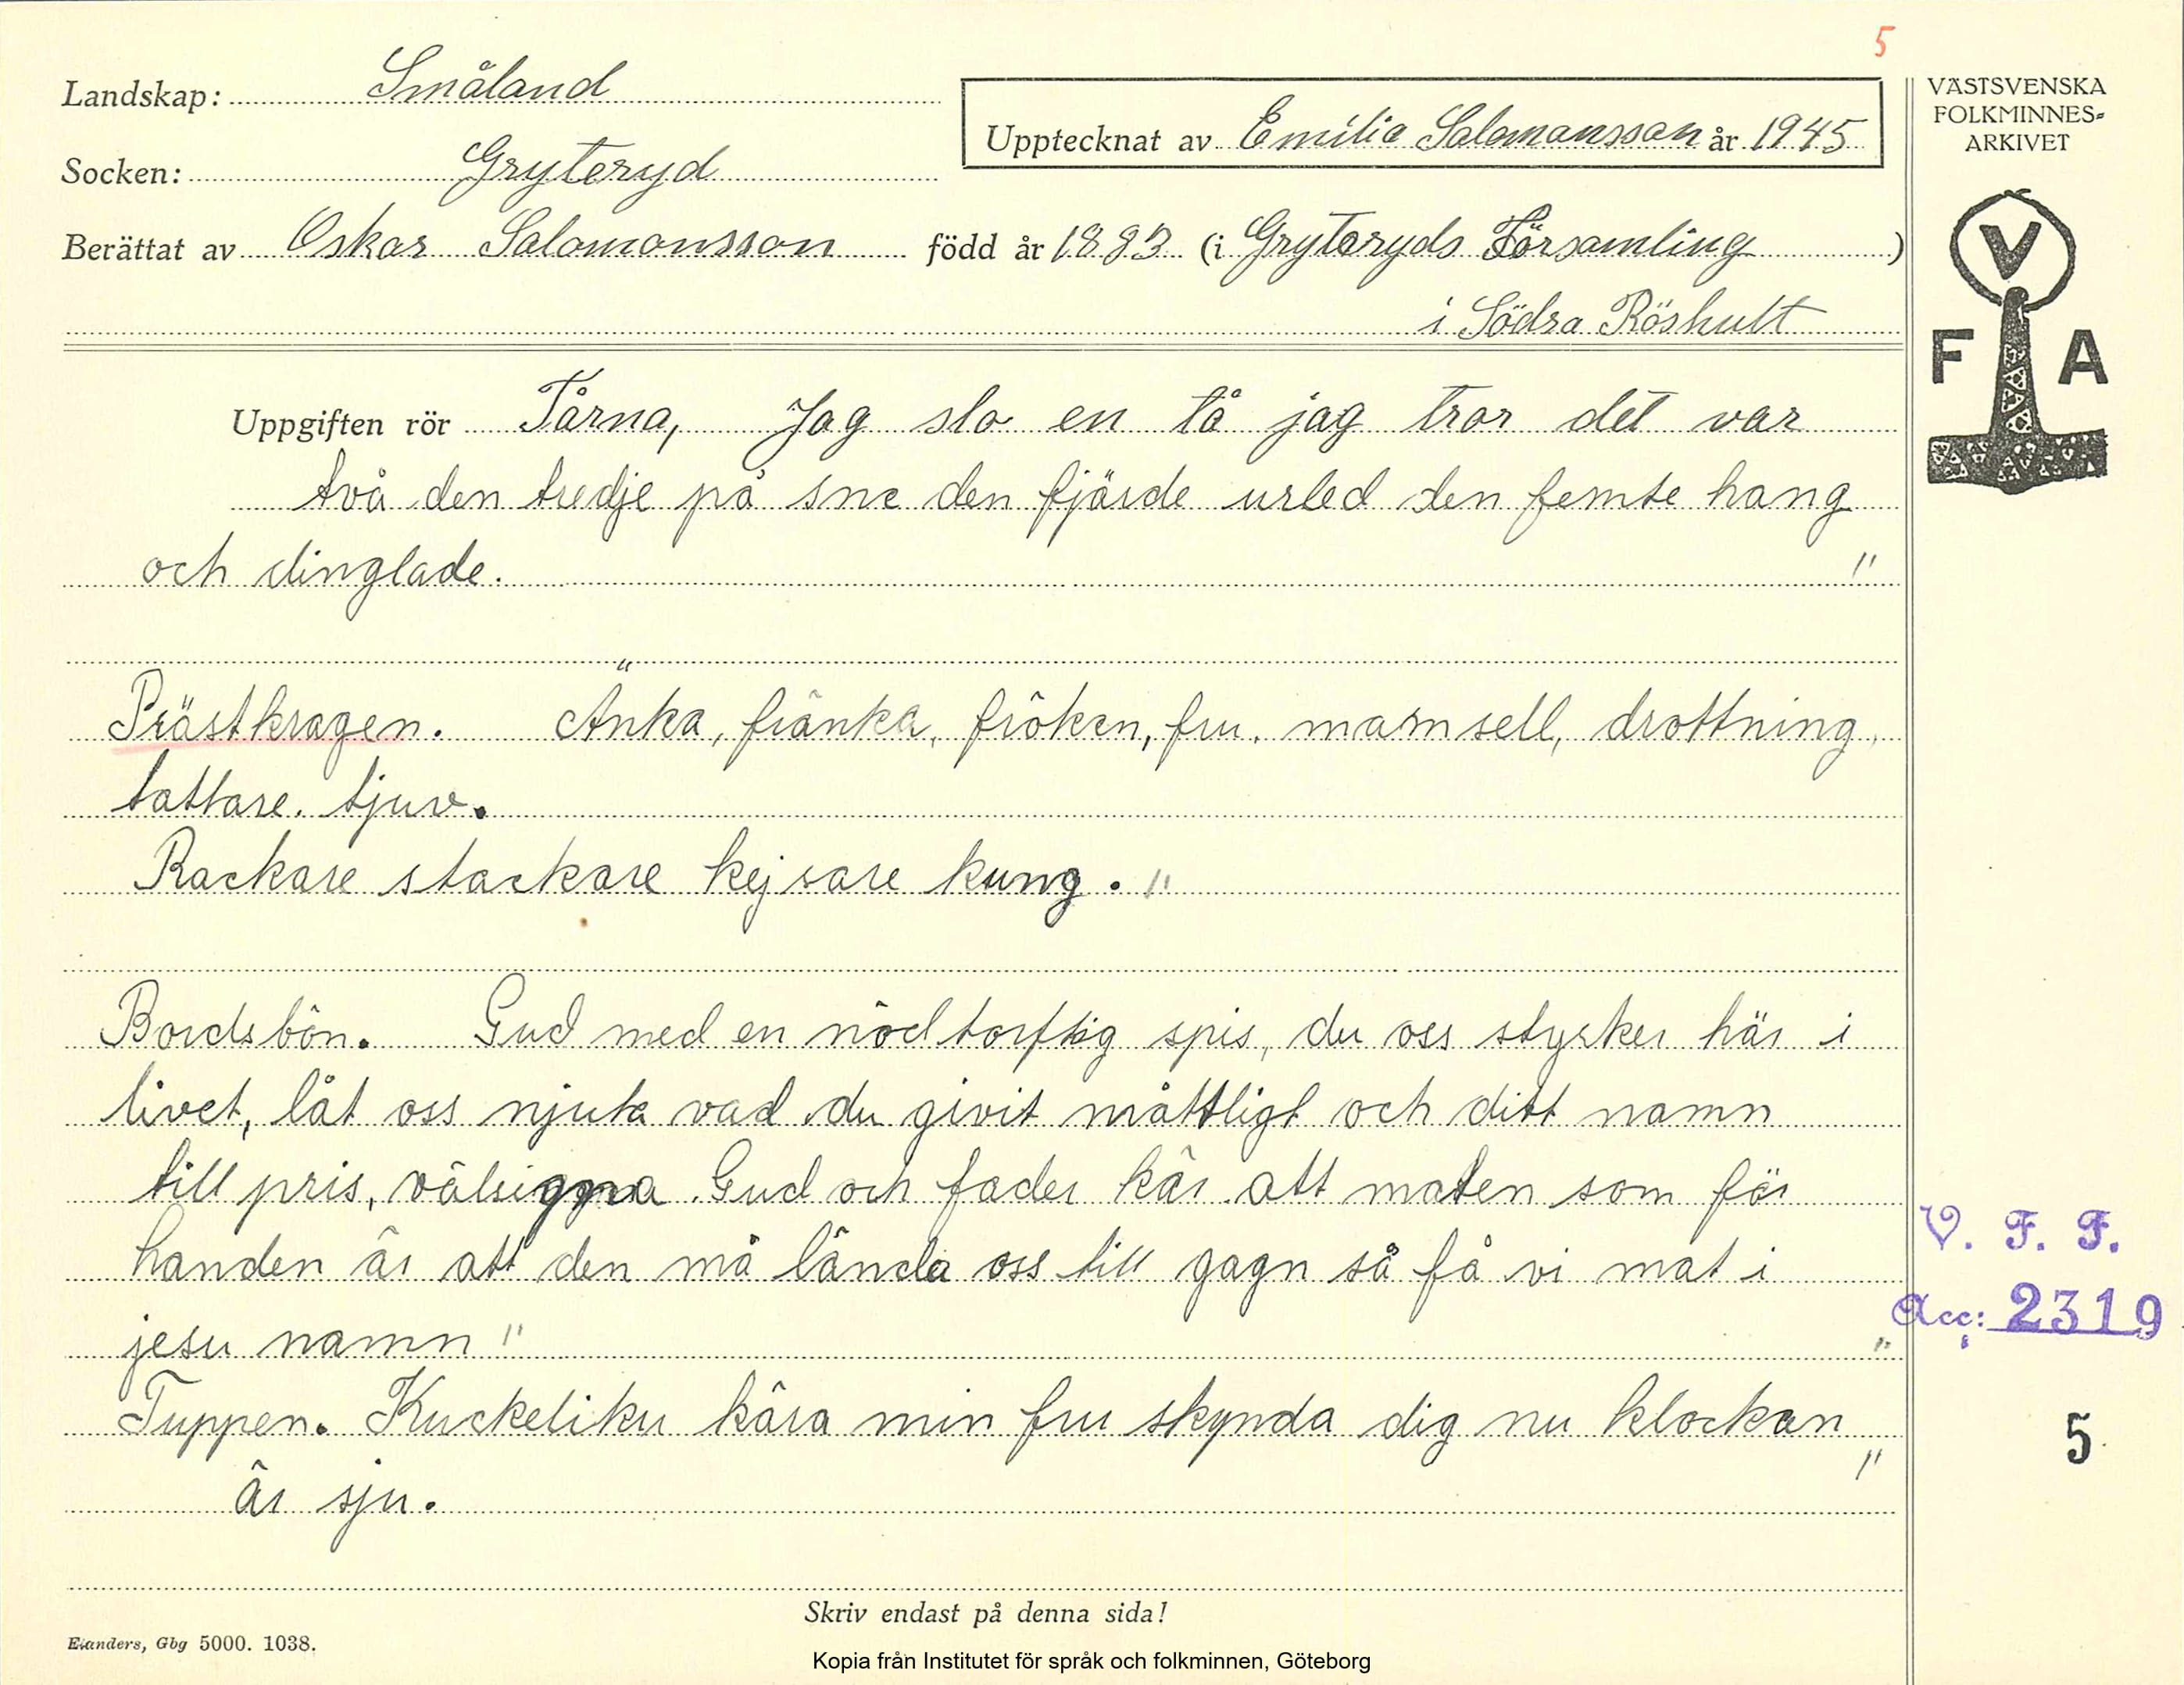 5
Landskap: Småland
Upptecknat av Emilia Salomonsson år 1945
Socken: Gryteryd
Berättat av Oskar Salomonsson född år 1883 (i Gryteryds Församling)
i Södra Röshult
VÄSTSVENSKA
FOLKMINNES-
ARKIVET
V
F A
Uppgiften rör Tårna, Jag slo en tå jag tror det var
två den tredje på sne den fjärde urled den femte hang
och dinglade. "
Prästkragen. "Änka, fränka, fröken, fru. mamsell, drottning,
tattare. tjuv.
Rackare stackare kejsare kung. "
Bordsbön. Gud med en nödtorftig spis, du oss styrker här i
livet, låt oss njuta vad du givit måttligt och ditt namn
till pris, välsigna Gud och fader kär att maten som för
handen är att den må lända oss till gagn så få vi mat i
jesu namn " "
Tuppen. Kuckeliku kära min fru skynda dig nu klockan
är sju. "
V. F. F.
Acc: 2319
5
Skriv endast på denna sida!
Elanders, Gbg 5000. 1038.
Kopia från Institutet för språk och folkminnen, Göteborg